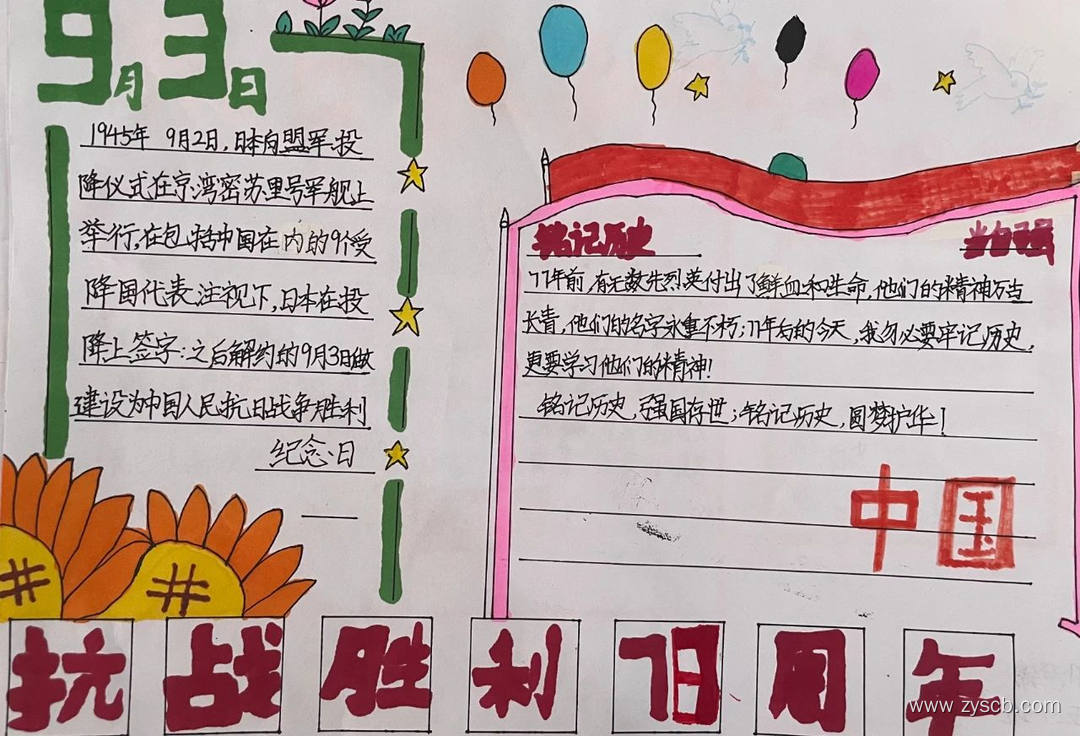 9月3日
1945年 9月2日,日本向盟军投
降仪式在东京湾密苏里号军舰上
举行,在包括中国在内的9个受
降国代表注视下,日本在投
降上签字;之后解约的9月3日做
建设为中国人民抗日战争胜利
纪念日
铭记历史 当自强
77年前,有无数先烈英付出了鲜血和生命,他们的精神万古
长青,他们的名字永垂不朽;77年后的今天,我勿必要牢记历史,
更要学习他们的精神!
铭记历史,强国存世;铭记历史,圆梦护华!
中国
抗战胜利78周年
www.zyscb.com